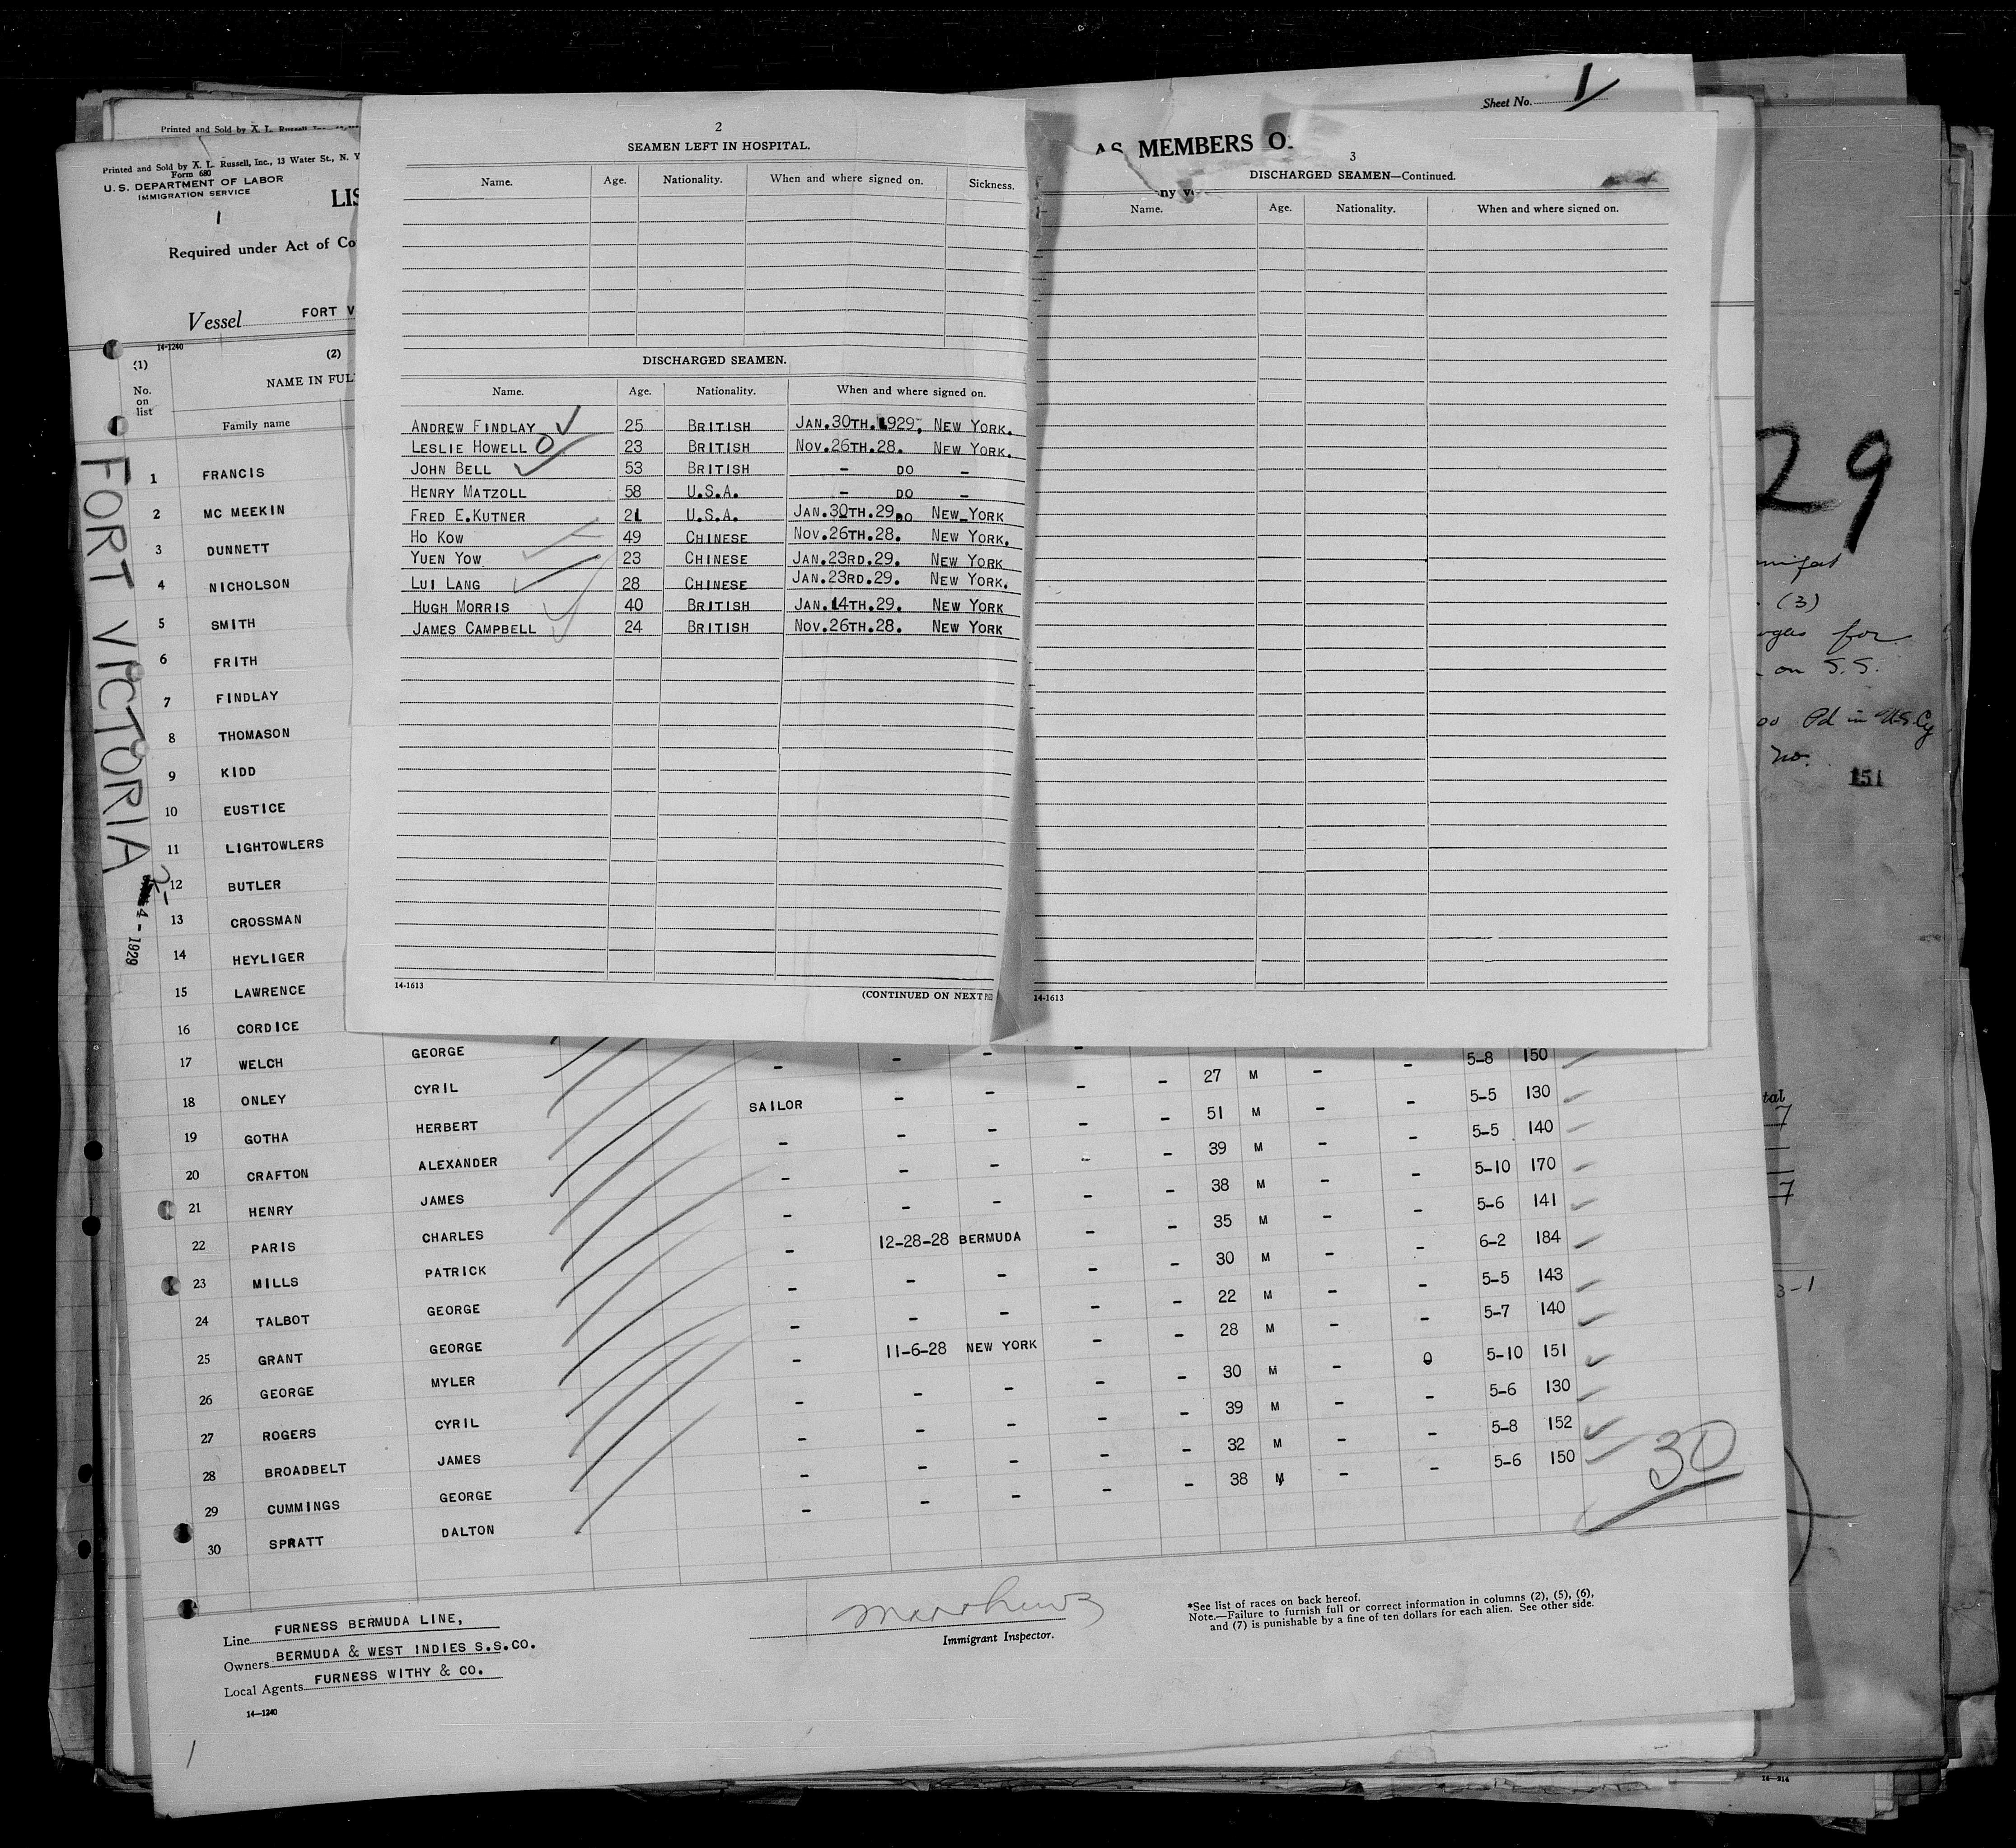 Sheet No. 1
Printed and Sold by X. L. Russell, Inc.
Printed and Sold by X. L. Russell, Inc., 13 Water St., N. Y
Form 680
U. S. DEPARTMENT OF LABOR
IMMIGRATION SERVICE
1
LIS
Required under Act of Co
Vessel FORT V
14-1240
(1) (2)
No. on list
NAME IN FUL
Family name
AS MEMBERS O
ny v
2
SEAMEN LEFT IN HOSPITAL.
Name. Age. Nationality. When and where signed on. Sickness.
DISCHARGED SEAMEN.
Name. Age. Nationality. When and where signed on.
ANDREW FINDLAY 25 BRITISH JAN.30TH.1929, NEW YORK.
LESLIE HOWELL 23 BRITISH NOV.26TH.28. NEW YORK.
JOHN BELL 53 BRITISH - DO -
HENRY MATZOLL 58 U.S.A. - DO -
FRED E.KUTNER 21 U.S.A. JAN.30TH.29. DO NEW YORK
HO KOW 49 CHINESE NOV.26TH.28. NEW YORK.
YUEN YOW 23 CHINESE JAN.23RD.29. NEW YORK
LUI LANG 28 CHINESE JAN.23RD.29. NEW YORK.
HUGH MORRIS 40 BRITISH JAN.14TH.29. NEW YORK
JAMES CAMPBELL 24 BRITISH NOV.26TH.28. NEW YORK
14-1613
(CONTINUED ON NEXT
3
DISCHARGED SEAMEN—Continued.
Name. Age. Nationality. When and where signed on.
14-1613
FORT VICTORIA
4 - 1929
1 FRANCIS
2 MC MEEKIN
3 DUNNETT
4 NICHOLSON
5 SMITH
6 FRITH
7 FINDLAY
8 THOMASON
9 KIDD
10 EUSTICE
11 LIGHTOWLERS
12 BUTLER
13 CROSSMAN
14 HEYLIGER
15 LAWRENCE
16 CORDICE
17 WELCH GEORGE - - - 5-8 150
18 ONLEY CYRIL SAILOR - - - - 27 M - - 5-5 130
19 GOTHA HERBERT - - - - - 51 M - - 5-5 140
20 CRAFTON ALEXANDER - - - - - 39 M - - 5-10 170
21 HENRY JAMES - - - - - 38 M - - 5-6 141
22 PARIS CHARLES - 12-28-28 BERMUDA - - 35 M - - 6-2 184
23 MILLS PATRICK - - - - - 30 M - - 5-5 143
24 TALBOT GEORGE - - - - - 22 M - - 5-7 140
25 GRANT GEORGE - 11-6-28 NEW YORK - - 28 M - - 5-10 151
26 GEORGE MYLER - - - - - 30 M - - 5-6 130
27 ROGERS CYRIL - - - - - 39 M - - 5-8 152
28 BROADBELT JAMES - - - - - 32 M - - 5-6 150
29 CUMMINGS GEORGE - - - - - 38 M - -
30 SPRATT DALTON
30
Line FURNESS BERMUDA LINE,
Owners BERMUDA & WEST INDIES S.S.CO.
Local Agents FURNESS WITHY & CO.
14—1240
Immigrant Inspector.
*See list of races on back hereof.
Note.—Failure to furnish full or correct information in columns (2), (5), (6),
and (7) is punishable by a fine of ten dollars for each alien. See other side.
1
29
(3)
for
on S.S.
00 Pd in U.S.Cy
No.
151
tal
7
7
3-1